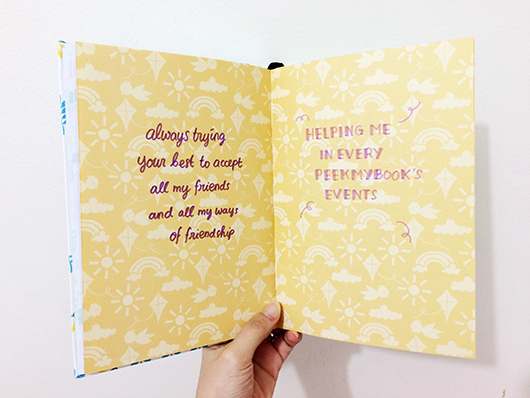 always trying
your best to accept
all my friends
and all my ways
of friendship
HELPING ME
IN EVERY
PEEKMYBOOK'S
EVENTS